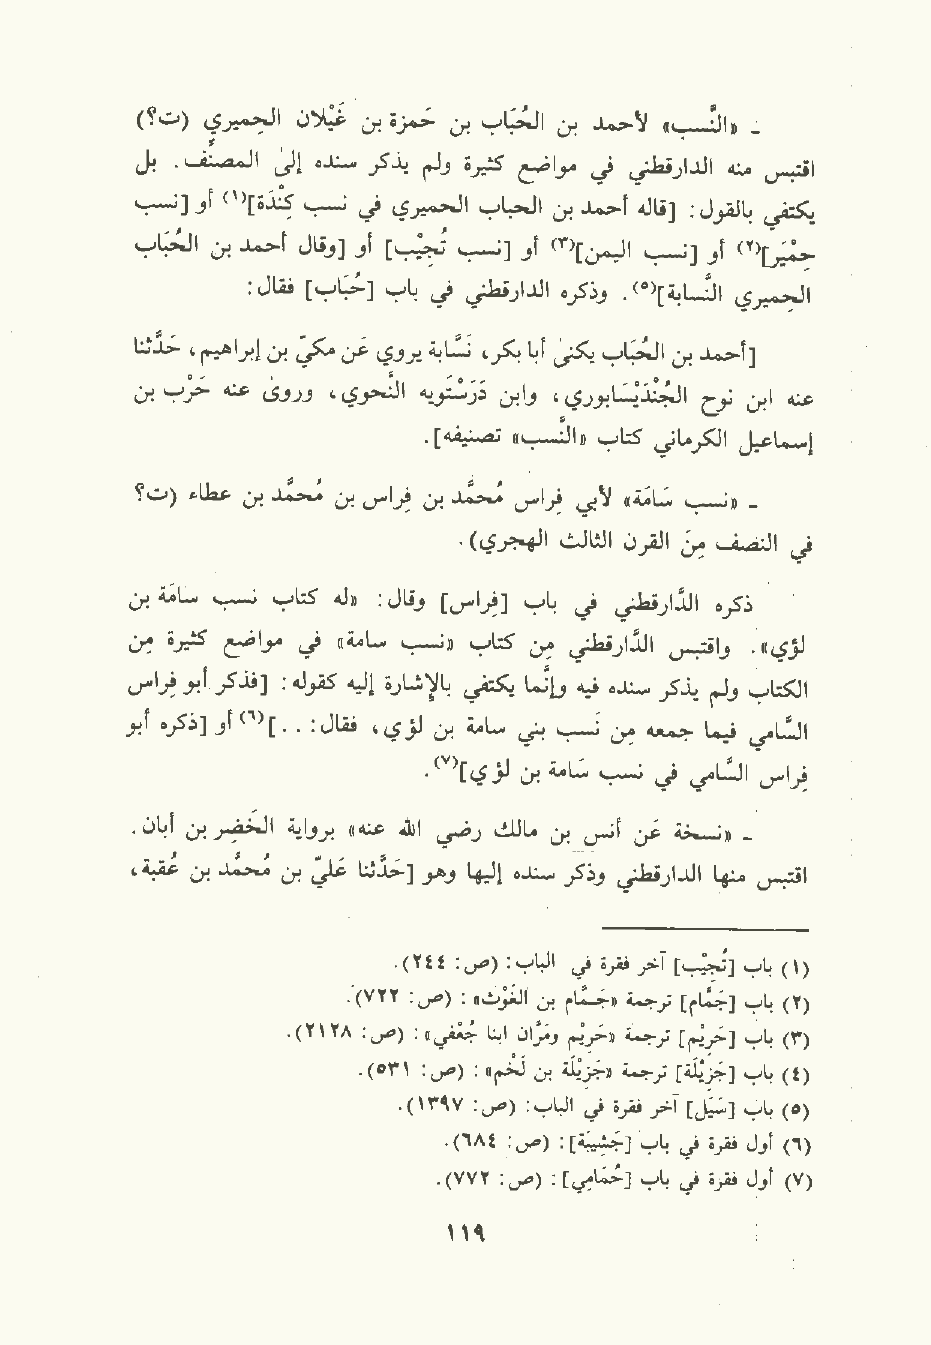 ـ «النَّسب» لأحمد بن الحُبَاب بن حَمزة بن غَيْلان الحِميري (ت؟)
اقتبس منه الدارقطني في مواضع كثيرة ولم يذكر سنده إلىٰ المصنِّف. بل
يكتفي بالقول: [قاله أحمد بن الحباب الحميري في نسب كَنْدَة](١) أو [نسب
حِمْيَر](٢) أو [نسب اليمن](٣) أو [نسب تُجِيْب] أو [وقال أحمد بن الحُبَاب
الحِميري النسَّابة](٥). وذكره الدارقطني في باب [حُبَاب] فقال:
[أحمد بن الحُبَاب يكنىٰ أبا بكر، نسَّابة يروي عن مكيّ بن إبراهيم، حَدَّثنا
عنه ابن نوح الجُنْدَيْسَابوري، وابن دَرَسْتَويه النَّحوي، وروىٰ عنه حَرْب بن
إسماعيل الكرماني كتاب «النَّسب» تصنيفه].
ـ «نسب سَامَة» لأبي فِراس مُحمَّد بن فِراس بن مُحمَّد بن عطاء (ت؟
في النصف مِنَ القرن الثالث الهجري).
ذكره الدَّارقطني في باب [فِراس] وقال: «له كتاب نسب سامَة بن
لؤي». واقتبس الدَّارقطني مِن كتاب «نسب سامة» في مواضع كثيرة مِن
الكتاب ولم يذكر سنده فيه وإنَّما يكتفي بالإشارة إليه كقوله: [فذكر أبو فِراس
السَّامي فيما جمعه مِن نَسب بني سامة بن لؤي، فقال: . .](٦) أو [ذكره أبو
فِراس السَّامي في نسب سَامة بن لؤي](٧).
ـ «نسخة عَن أنس بن مالك رضي الله عنه» برواية الخَضِر بن أبان.
اقتبس منها الدارقطني وذكر سنده إليها وهو [حَدَّثنا عَليّ بن مُحمَّد بن عُقبة،
(١) باب [تُجِيْب] آخر فقرة في الباب: (ص: ٢٤٤).
(٢) باب [جَمَّام] ترجمة «جَمَّام بن الغَوْث» : (ص: ٧٢٢).
(٣) باب [حَرِيْم] ترجمة «حَرِيْم ومَرَّان ابنا جُعْفي» : (ص: ٢١٢٨).
(٤) باب [جَزِيْلَة] ترجمة «جَزِيْلَة بن لَخْم» : (ص: ٥٣١).
(٥) باب [سَيَل] آخر فقرة في الباب: (ص: ١٣٩٧).
(٦) أول فقرة في باب [خَشِيبَة] : (ص: ٦٨٤).
(٧) أول فقرة في باب [حُمَامِي] : (ص: ٧٧٢).
١١٩